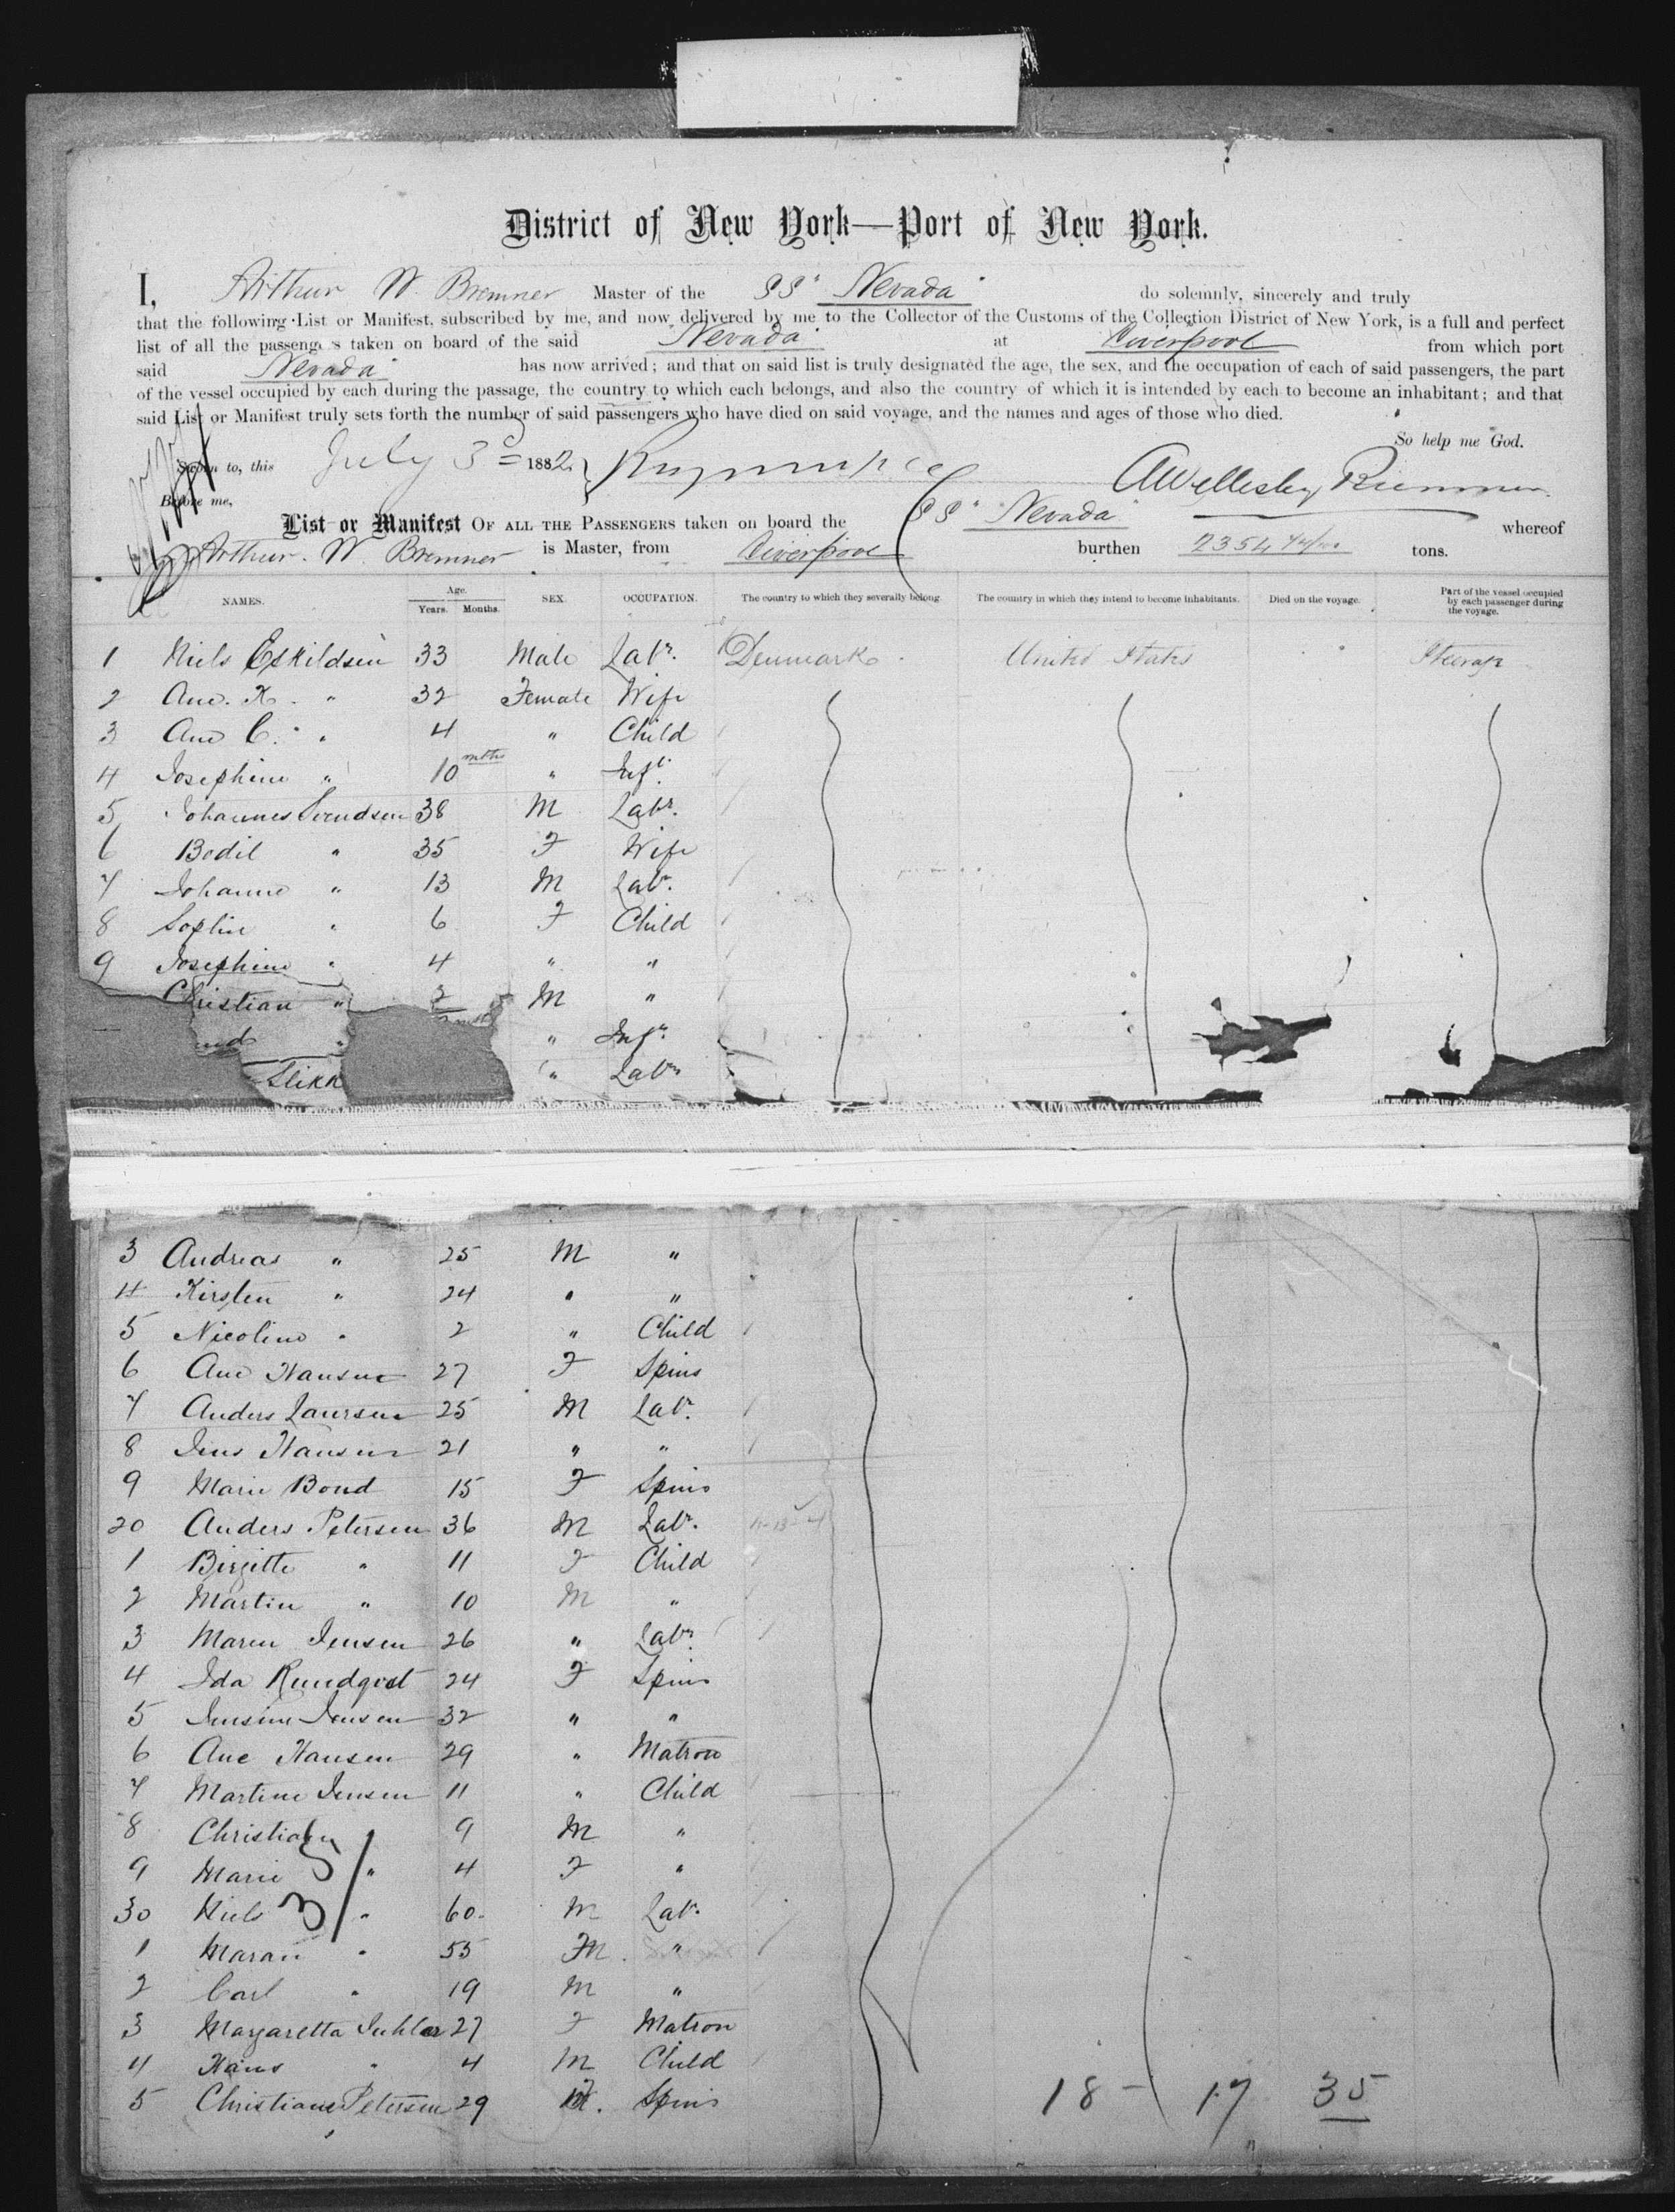 District of New York—Port of New York.
I, Arthur W. Bremner Master of the SS "Nevada" do solemnly, sincerely and truly
that the following List or Manifest, subscribed by me, and now delivered by me to the Collector of the Customs of the Collection District of New York, is a full and perfect
list of all the passengers taken on board of the said Nevada at Liverpool from which port
said Nevada has now arrived; and that on said list is truly designated the age, the sex, and the occupation of each of said passengers, the part
of the vessel occupied by each during the passage, the country to which each belongs, and also the country of which it is intended by each to become an inhabitant; and that
said List or Manifest truly sets forth the number of said passengers who have died on said voyage, and the names and ages of those who died.
So help me God.
Sworn to, this July 3d 1882
Before me,
List or Manifest OF ALL THE PASSENGERS taken on board the SS "Nevada" whereof
Arthur. W. Bremner is Master, from Liverpool burthen 2354 tons.
NAMES. Age. Years. Months. SEX. OCCUPATION. The country to which they severally belong. The country in which they intend to become inhabitants. Died on the voyage. Part of the vessel occupied by each passenger during the voyage.
1 Niels Eskildsen 33 Male Labr. Denmark United States Steerage
2 Ane. K. " 32 Female Wife
3 Ane C. " 4 " Child
4 Josephine " 10 mths " Inft.
5 Johannes Svendsen 38 M Labr.
6 Bodil " 35 F Wife
7 Johanne " 13 M Labr.
8 Sophie " 6 F Child
9 Josephine " 4 " "
Christian " 2 M "
" Inft.
" Labr
3 Andreas " 25 M "
4 Kirsten " 24 " "
5 Nicoline " 2 " Child
6 Ane Hansen 27 F Spins
7 Anders Laursen 25 M Labr.
8 Jens Hansen 21 " "
9 Marie Bond 15 F Spins
20 Anders Petersen 36 M Labr.
1 Birgitte " 11 F Child
2 Martin " 10 M "
3 Maren Jensen 26 " Labr.
4 Ida Rundqvist 24 F Spins
5 Jensine Jensen 32 " "
6 Ane Hansen 29 " Matron
7 Martine Jensen 11 " Child
8 Christian 9 M "
9 Marie " 4 F "
30 Niels " 60 M Labr.
1 Maran " 55 "
2 Carl " 19 M "
3 Margaretta 27 F Matron
4 Hans " 4 M Child
5 Christiane Petersen 29 F. Spins
18 - 17 35